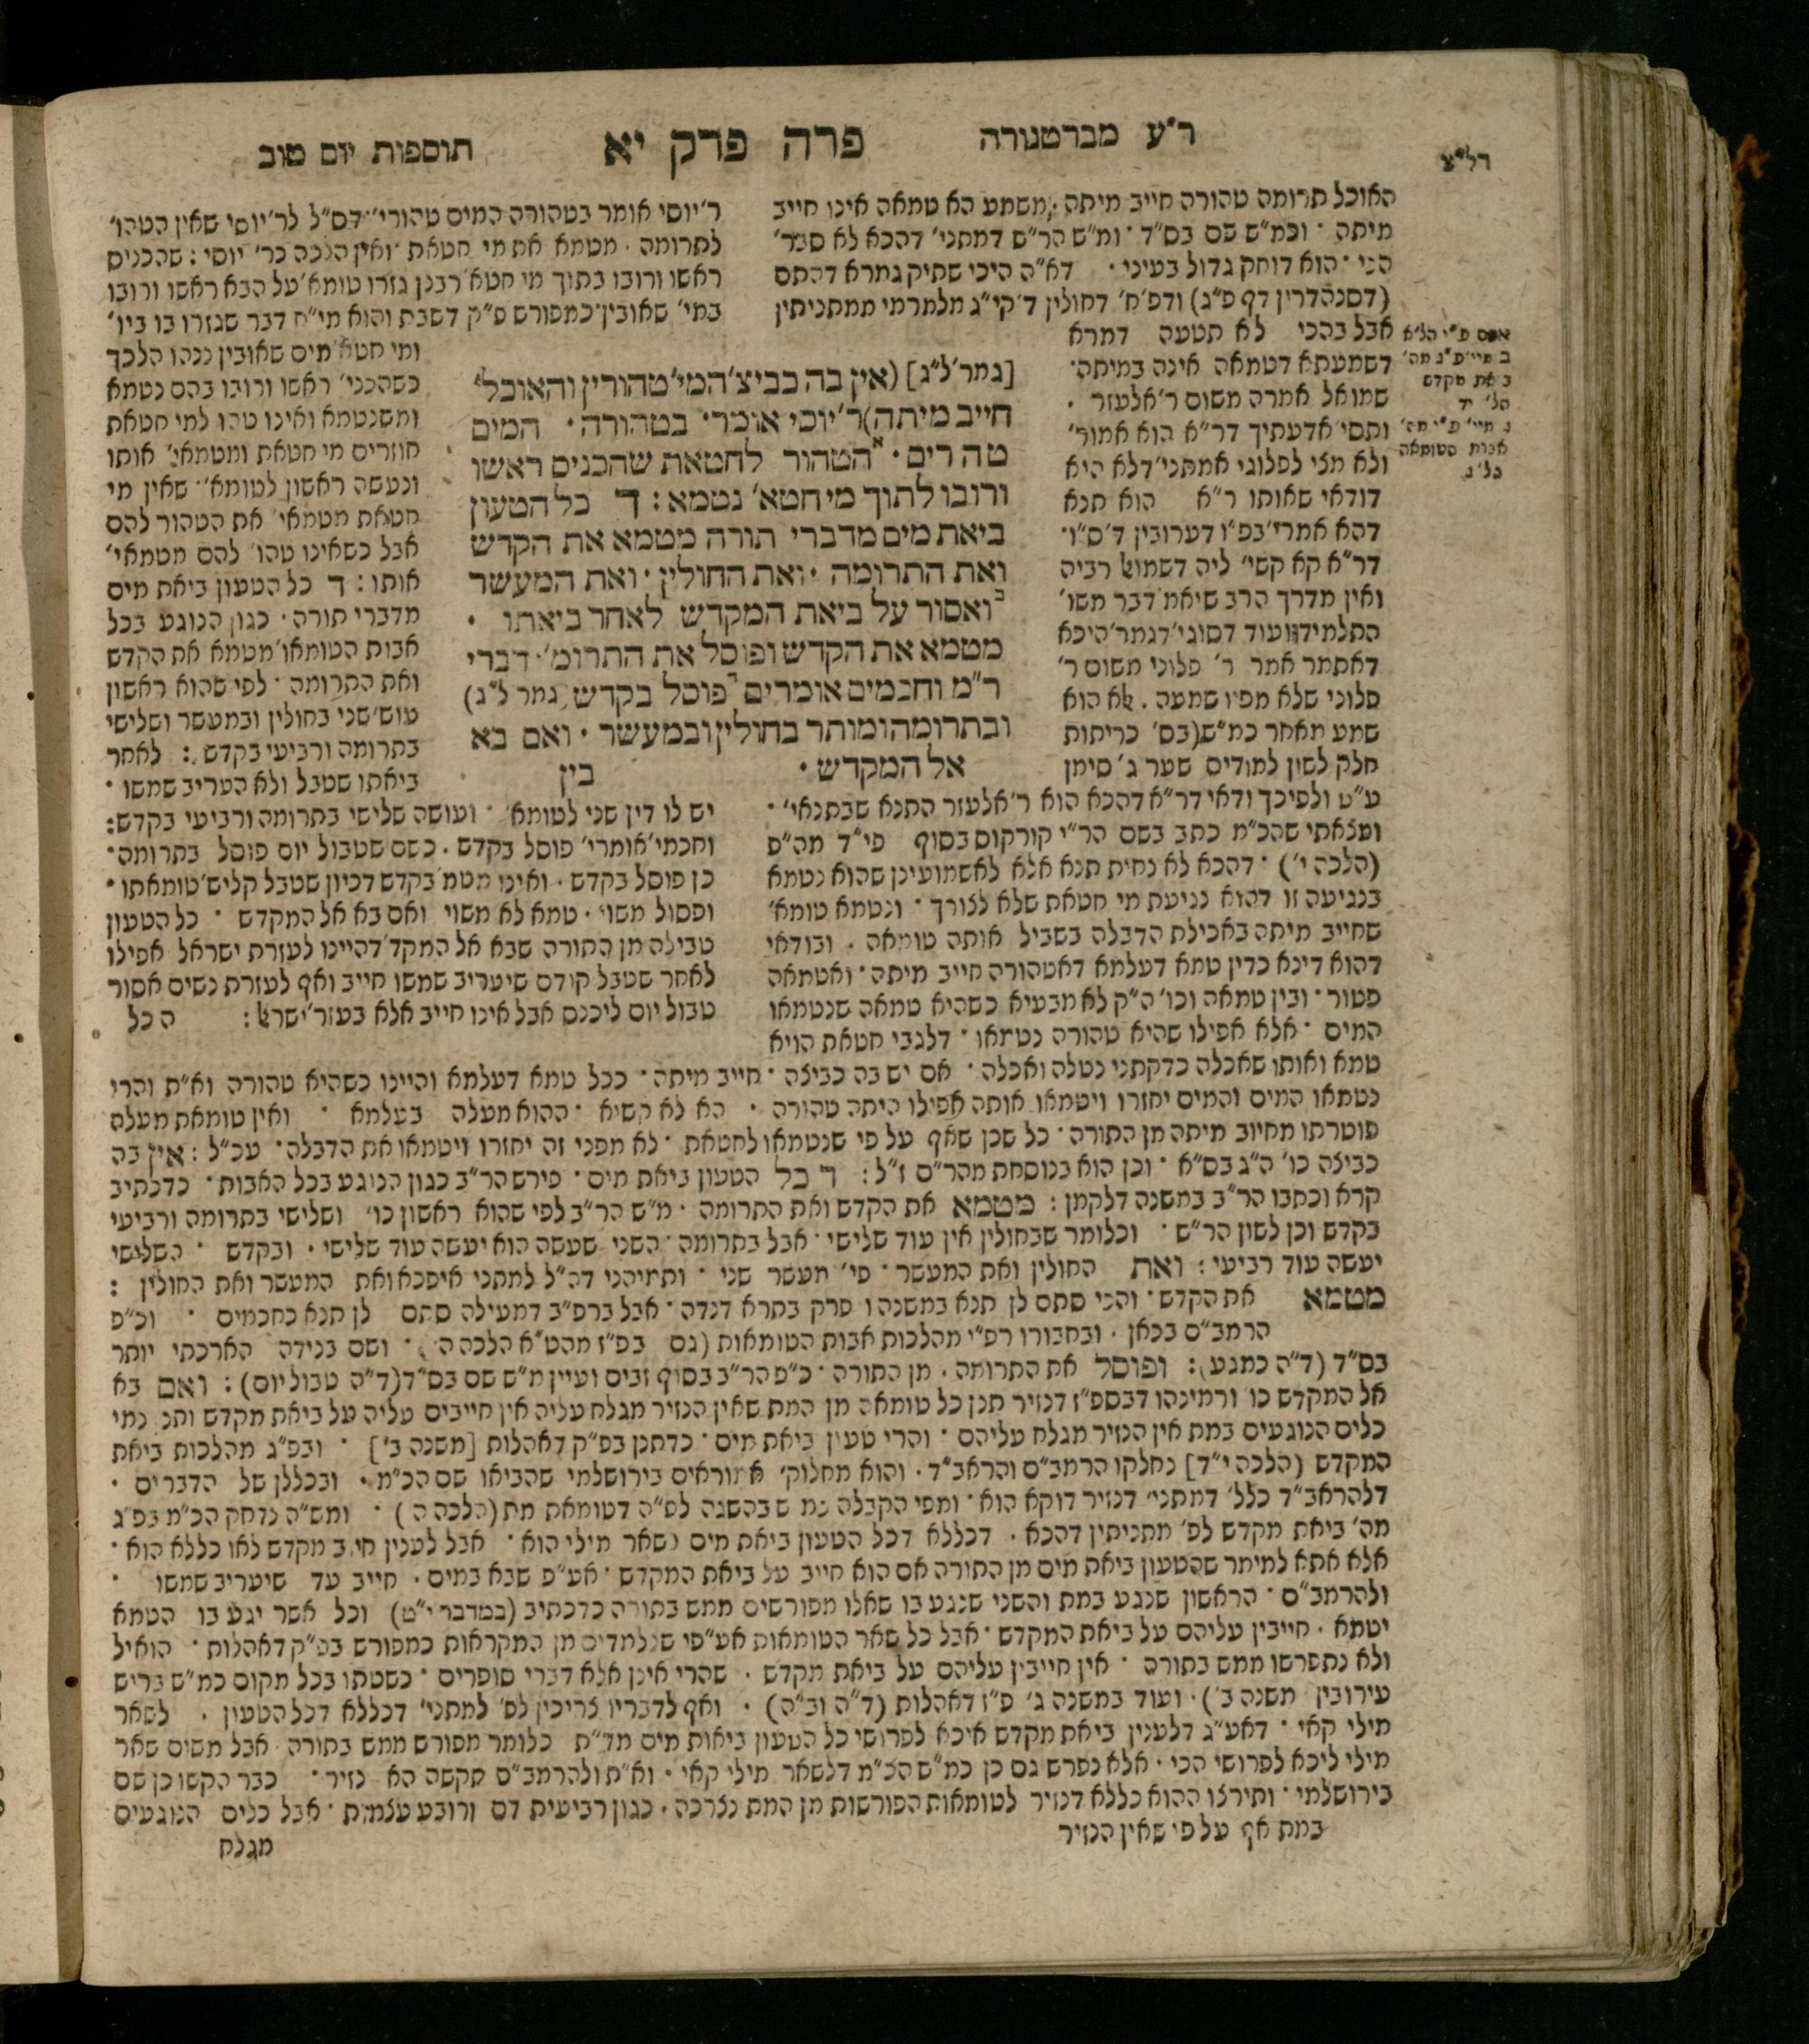 ר"ע מברטנורה
פרה פרק יא
תוספות יום טוב
רל"צ
האוכל תרומה טהורה חייב מיתה משמע הא טמאה אינו חייב
מיתה · וכמ"ש שם בס"ד · ומ"ש הר"ש דמתני' דהכא לא סבר'
הכי · הוא דוחק גדול בעיני · דא"ה היכי שתיק גמרא דהתם
(דסנהדרין דף פ"ג) ודפ'ח' דחולין ד'קי"ג מלמרמי ממתניתין
אבל בהכי לא תטעה דמרא
דשמעתא דטמאה אינה במיתה·
שמואל אמרה משום ר'אלעזר ·
ותסי' אדעתיך דר"א הוא אמור'
ולא מצי לפלוגי אמתני' דלא היא
דודאי שאותו ר"א הוא תנא
דהא אמרי' בפ"ו דערובין ד'ס"ו·
דר"א קא קשי' ליה דשמואל רביה
ואין מדרך הרב שיאמ' דבר משו'
התלמיד ועוד דסוגי' דגמר' היכא
דאתמר אמר ר' פלוני משום ר'
פלוני שלא מפיו שמעה . אלא הוא
שמע מאחר כמ"ש (בס' כריתות
חלק לשון למודים שער ג' סימן
ע"ט ולפיכך ודאי דר"א דהכא הוא ר'אלעזר התנא שבתנאי' ·
ומצאתי שהכ"מ כתב בשם הר"י קורקוס בסוף פי"ד מה"פ
(הלכה י') · דהכא לא נחית תנא אלא לאשמועינן שהוא נטמא
בנגיעה זו דהוא נגיעת מי חטאת שלא לצורך · ונטמא טומא'
שחייב מיתה באכילת הדבלה בשביל אותה טומאה . ובודאי
דהוא דינא כדין טמא דעלמא דאטהורה חייב מיתה · ואטמאה
פטור · ובין טמאה וכו' ה"ק לא מבעיא כשהיא טמאה שנטמאו
המים · אלא אפילו שהיא טהורה נטמאו · דלגבי חטאת הויא
אפס פ"י הל'א
ב מיי' פ"ג מה'
ביאת מקדש
הל' יד
ג מיי' פ"י מה'
אבות הטומאה
הל'ג
[גמר' ל"ג] (אין בה כביצ' המי' טהורין והאוכל'
חייב מיתה) ר'יוסי אומר· בטהורה · המים
טהרים · הטהור לחטאת שהכניס ראשו
ורובו לתוך מי חטא' נטמא : ד כל הטעון
ביאת מים מדברי תורה מטמא את הקדש
ואת התרומה · ואת החולין · ואת המעשר
ואסור על ביאת המקדש לאחר ביאתו ·
מטמא את הקדש ופוסל את התרומ'· דברי
ר"מ וחכמים אומרים פוסל בקדש (גמר ל"ג)
ובתרומה ומותר בחולין ובמעשר · ואם בא
אל המקדש · בין
ר'יוסי אומר בטהורה המים טהורי' · דס"ל לר'יוסי שאין הטהו'
לתרומה . מטמא את מי חטאת · ואין הלכה כר' יוסי : שהכניס
ראשו ורובו בתוך מי חטא' רבנן גזרו טומא' על הבא ראשו ורובו
במי' שאובין · כמפורש פ"ק דשבת והוא מי"ח דבר שגזרו בו ביו'
ומי חטא' מים שאובין נינהו הלכך
כשהכני' ראשו ורובו בהם נטמא
ומשנטמא ואינו טהו' למי חטאת
חוזרים מי חטאת ומטמאי' אותו
ונעשה ראשון לטומא' · שאין מי
חטאת מטמאי' את הטהור להם
אבל כשאינו טהו' להם מטמאי'
אותו : ד כל הטעון ביאת מים
מדברי תורה · כגון הנוגע בכל
אבות הטומאו' מטמא את הקדש
ואת התרומה · לפי שהוא ראשון
עוש' שני בחולין ובמעשר ושלישי
בתרומה ורביעי בקדש : לאחר
ביאתו שטבל ולא העריב שמשו ·
יש לו דין שני לטומא' · ועושה שלישי בתרומה ורביעי בקדש:
וחכמי' אומרי' פוסל בקדש . כשם שטבול יום פוסל בתרומה·
כן פוסל בקדש · ואינו מטמ' בקדש דכיון שטבל קליש' טומאתו ·
ופסול משוי · טמא לא משוי ואם בא אל המקדש · כל הטעון
טבילה מן התורה שבא אל המקד' דהיינו לעזרת ישראל אפילו
לאחר שטבל קודם שיעריב שמשו חייב ואף לעזרת נשים אסור
טבול יום ליכנס אבל אינו חייב אלא בעזר' ישראל : הכל
טמא ואותו שאכלה כדקתני נטלה ואכלה · אם יש בה כביצה · חייב מיתה · ככל טמא דעלמא והיינו כשהיא טהורה וא"ת והרי
נטמאו המים והמים יחזרו ויטמאו אותה אפילו היתה טהורה · הא לא קשיא · ההוא מעלה בעלמא · ואין טומאת מעלה
פוטרתו מחיוב מיתה מן התורה · כל שכן שאף על פי שנטמאו לחטאת · לא מפני זה יחזרו ויטמאו את הדבלה · עכ"ל : אין בה
כביצה כו' ה"ג בס"א · וכן הוא בנוסחת מהר"ם ז"ל : ד כל הטעון ביאת מים · פירש הר"ב כגון הנוגע בכל האבות · כדכתיב
קרא וכתבו הר"ב במשנה דלקמן : מטמא את הקדש ואת התרומה · מ"ש הר"ב לפי שהוא ראשון כו' ושלישי בתרומה ורביעי
בקדש וכן לשון הר"ש · וכלומר שבחולין אין עוד שלישי · אבל בתרומה · השני שעשה הוא יעשה עוד שלישי . ובקדש · השלישי
יעשה עוד רביעי : ואת החולין ואת המעשר · פי' מעשר שני · ותמיהני דה"ל למתני איפכא ואת המעשר ואת החולין :
מטמא את הקדש · והכי סתם לן תנא במשנה ו פרק בתרא דנדה · אבל ברפ"ב דמעילה סתם לן תנא כחכמים · וכ"פ
הרמב"ם בכאן . ובחבורו רפ"י מהלכות אבות הטומאות (גם בפ"ז מהט"א הלכה ה') · ושם בנידה הארכתי יותר
בס"ד (ד"ה כמגע) : ופוסל את התרומה . מן התורה · כ"פ הר"ב בסוף זבים ועיין מ"ש שם בס"ד (ד"ה טבול יום) : ואם בא
אל המקדש כו' ורמינהו דבספ"ז דנזיר תנן כל טומאה מן המת שאין הנזיר מגלח עליה אין חייבים עליה על ביאת מקדש ותנן נמי
כלים הנוגעים במת אין הנזיר מגלח עליהם · והרי טעון ביאת מים · כדתנן בפ"ק דאהלות [משנה ב'] · ובפ"ג מהלכות ביאת
המקדש (הלכה י"ד] נחלקו הרמב"ם והראב"ד . והוא מחלוק' אמוראים בירושלמי שהביאו שם הכ"מ . ובכללן של הדברים ·
דלהראב"ד כלל' דמתני' דנזיר דוקא הוא · ומפי הקבלה כמ"ש בהשגה לפ"ה דטומאת מת (הלכה ה') · ומש"ה נדחק הכ"מ בפ"ג
מה' ביאת מקדש לפ' מתניתין דהכא . דכללא דכל הטעון ביאת מים דשאר מילי הוא · אבל לענין חיוב מקדש לאו כללא הוא ·
אלא אתא למימר שהטעון ביאת מים מן התורה אם הוא חייב על ביאת המקדש · אע"פ שבא במים . חייב עד שיעריב שמשו ·
ולהרמב"ם · הראשון שנגע במת והשני שנגע בו שאלו מפורשים ממש בתורה כדכתיב (במדבר י"ט) וכל אשר יגע בו הטמא
יטמא . חייבין עליהם על ביאת המקדש · אבל כל שאר הטומאות אע"פי שנלמדים מן המקראות כמפורש בפ"ק דאהלות · הואיל
ולא נתפרשו ממש בתורה · אין חייבין עליהם על ביאת מקדש . שהרי אינן אלא דברי סופרים · כשטתו בכל מקום כמ"ש בריש
עירובין משנה ב') · ועוד במשנה ג' פ"ז דאהלות (ד"ה וב"ה) . ואף לדבריו צריכין לפ' למתני' דכללא דכל הטעון . לשאר
מילי קאי · דאע"ג דלענין ביאת מקדש איכא לפרושי כל הטעון ביאות מים מד"ת כלומר מפורש ממש בתורה · אבל משום שאר
מילי ליכא לפרושי הכי · אלא נפרש גם כן כמ"ש הכ"מ דלשאר מילי קאי . וא"ת ולהרמב"ם תקשה הא נזיר · כבר הקשו כן שם
בירושלמי · ותירצו ההוא כללא דנזיר לטומאות הפורשות מן המת נצרכה . כגון רביעית דם ורובע עצמות · אבל כלים הנוגעים
במת אף על פי שאין הנזיר
מגלח